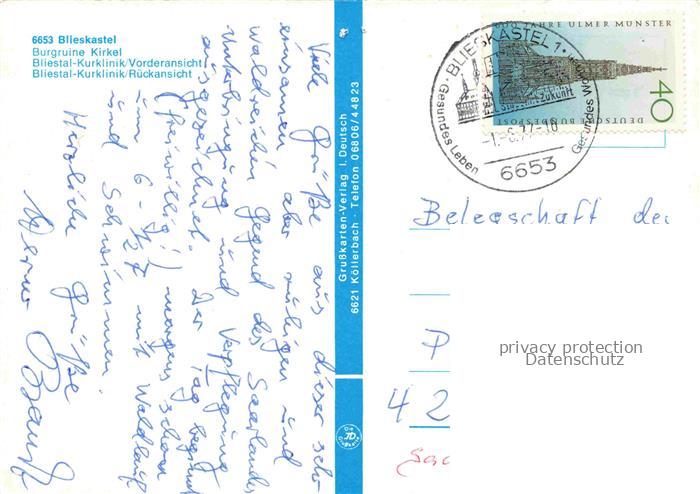 6653 Blieskastel
Burgruine Kirkel
Bliestal-Kurklinik/Vorderansicht
Bliestal-Kurklinik/Rückansicht
Viele Grüße aus dieser sehr
einsamen aber ruhigen und
waldreichen Gegend des Saarlandes
Unterbringung und Verpflegung
ausgezeichnet. Der Tag beginnt
(freiwillig!) morgens schon
um 6 - 1/2 7 mit Waldlauf
und Schwimmen.
Herzliche Grüße
Werner
Grußkarten-Verlag I. Deutsch
6621 Köllerbach · Telefon 06806/44823
600 JAHRE ULMER MÜNSTER
DEUTSCHE BUNDESPOST
40
BLIESKASTEL 1
Gesundes Leben
Gesundes Wohnen
Zukunft
6653
Belegschaft der
P
42
privacy protection
Datenschutz